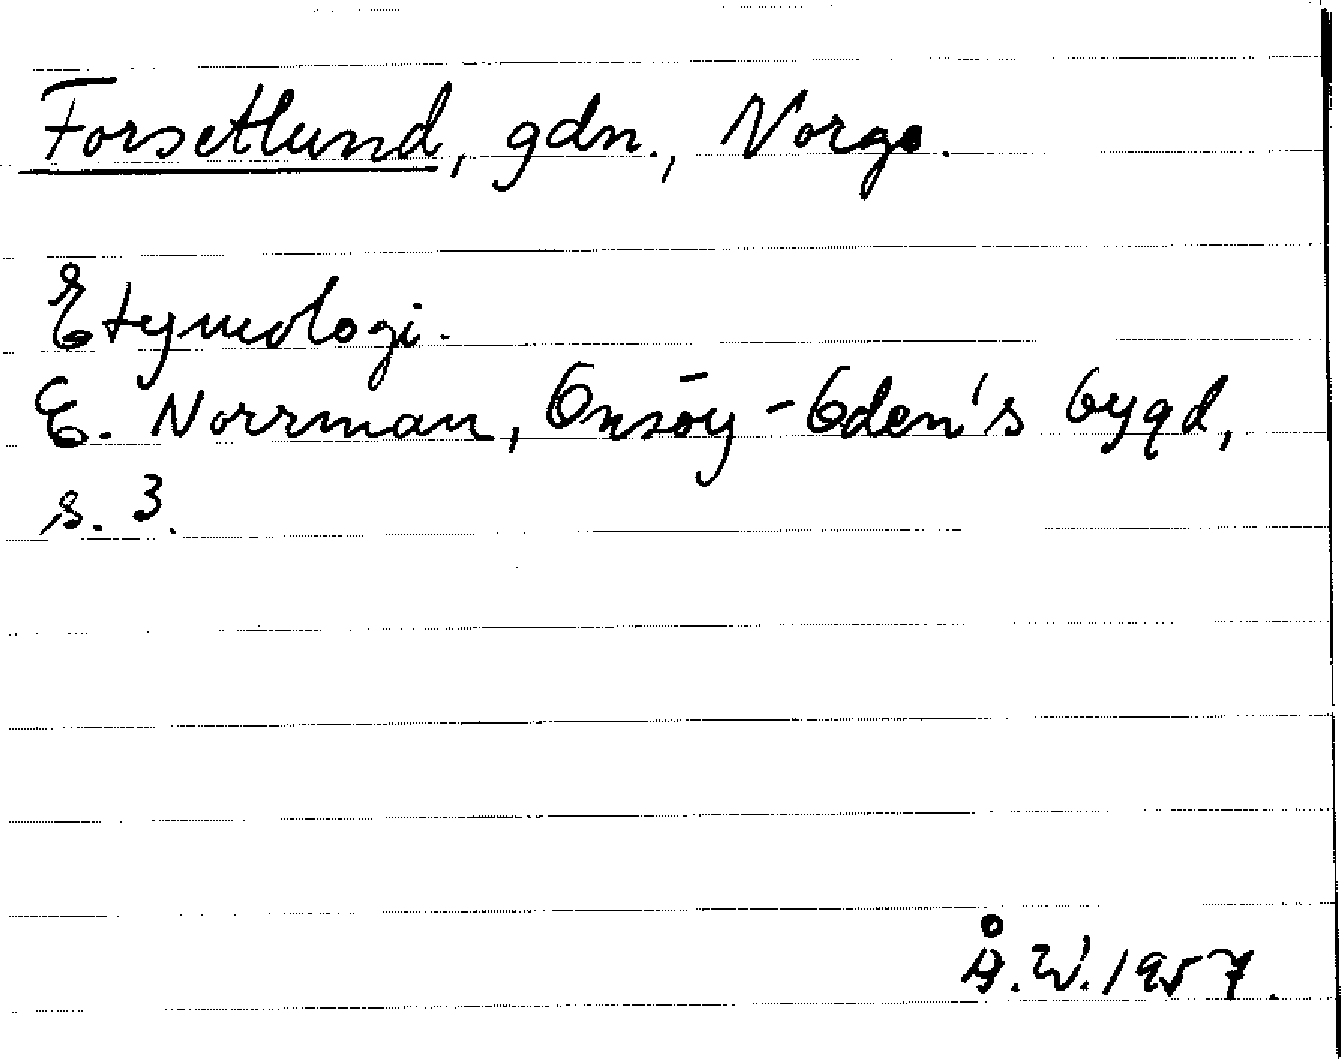 Forsetlund, gdn., Norge.
Etymologi.
E. Norrman, Onsöy - Oden's bygd,
s. 3.
Å.W. 1957.